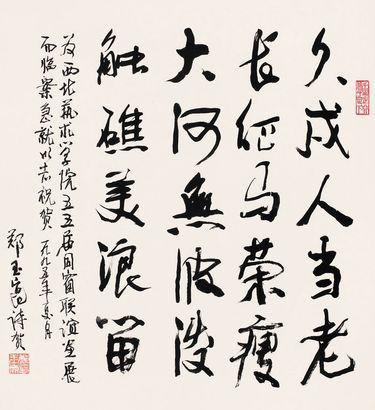 久戍人当老
长征马荣瘦
大河無波
触礁美浪留
为西北艺术学院五五届同窗联谊画展
而临案急就以志祝贺 一九九五年月
郑玉诗贺